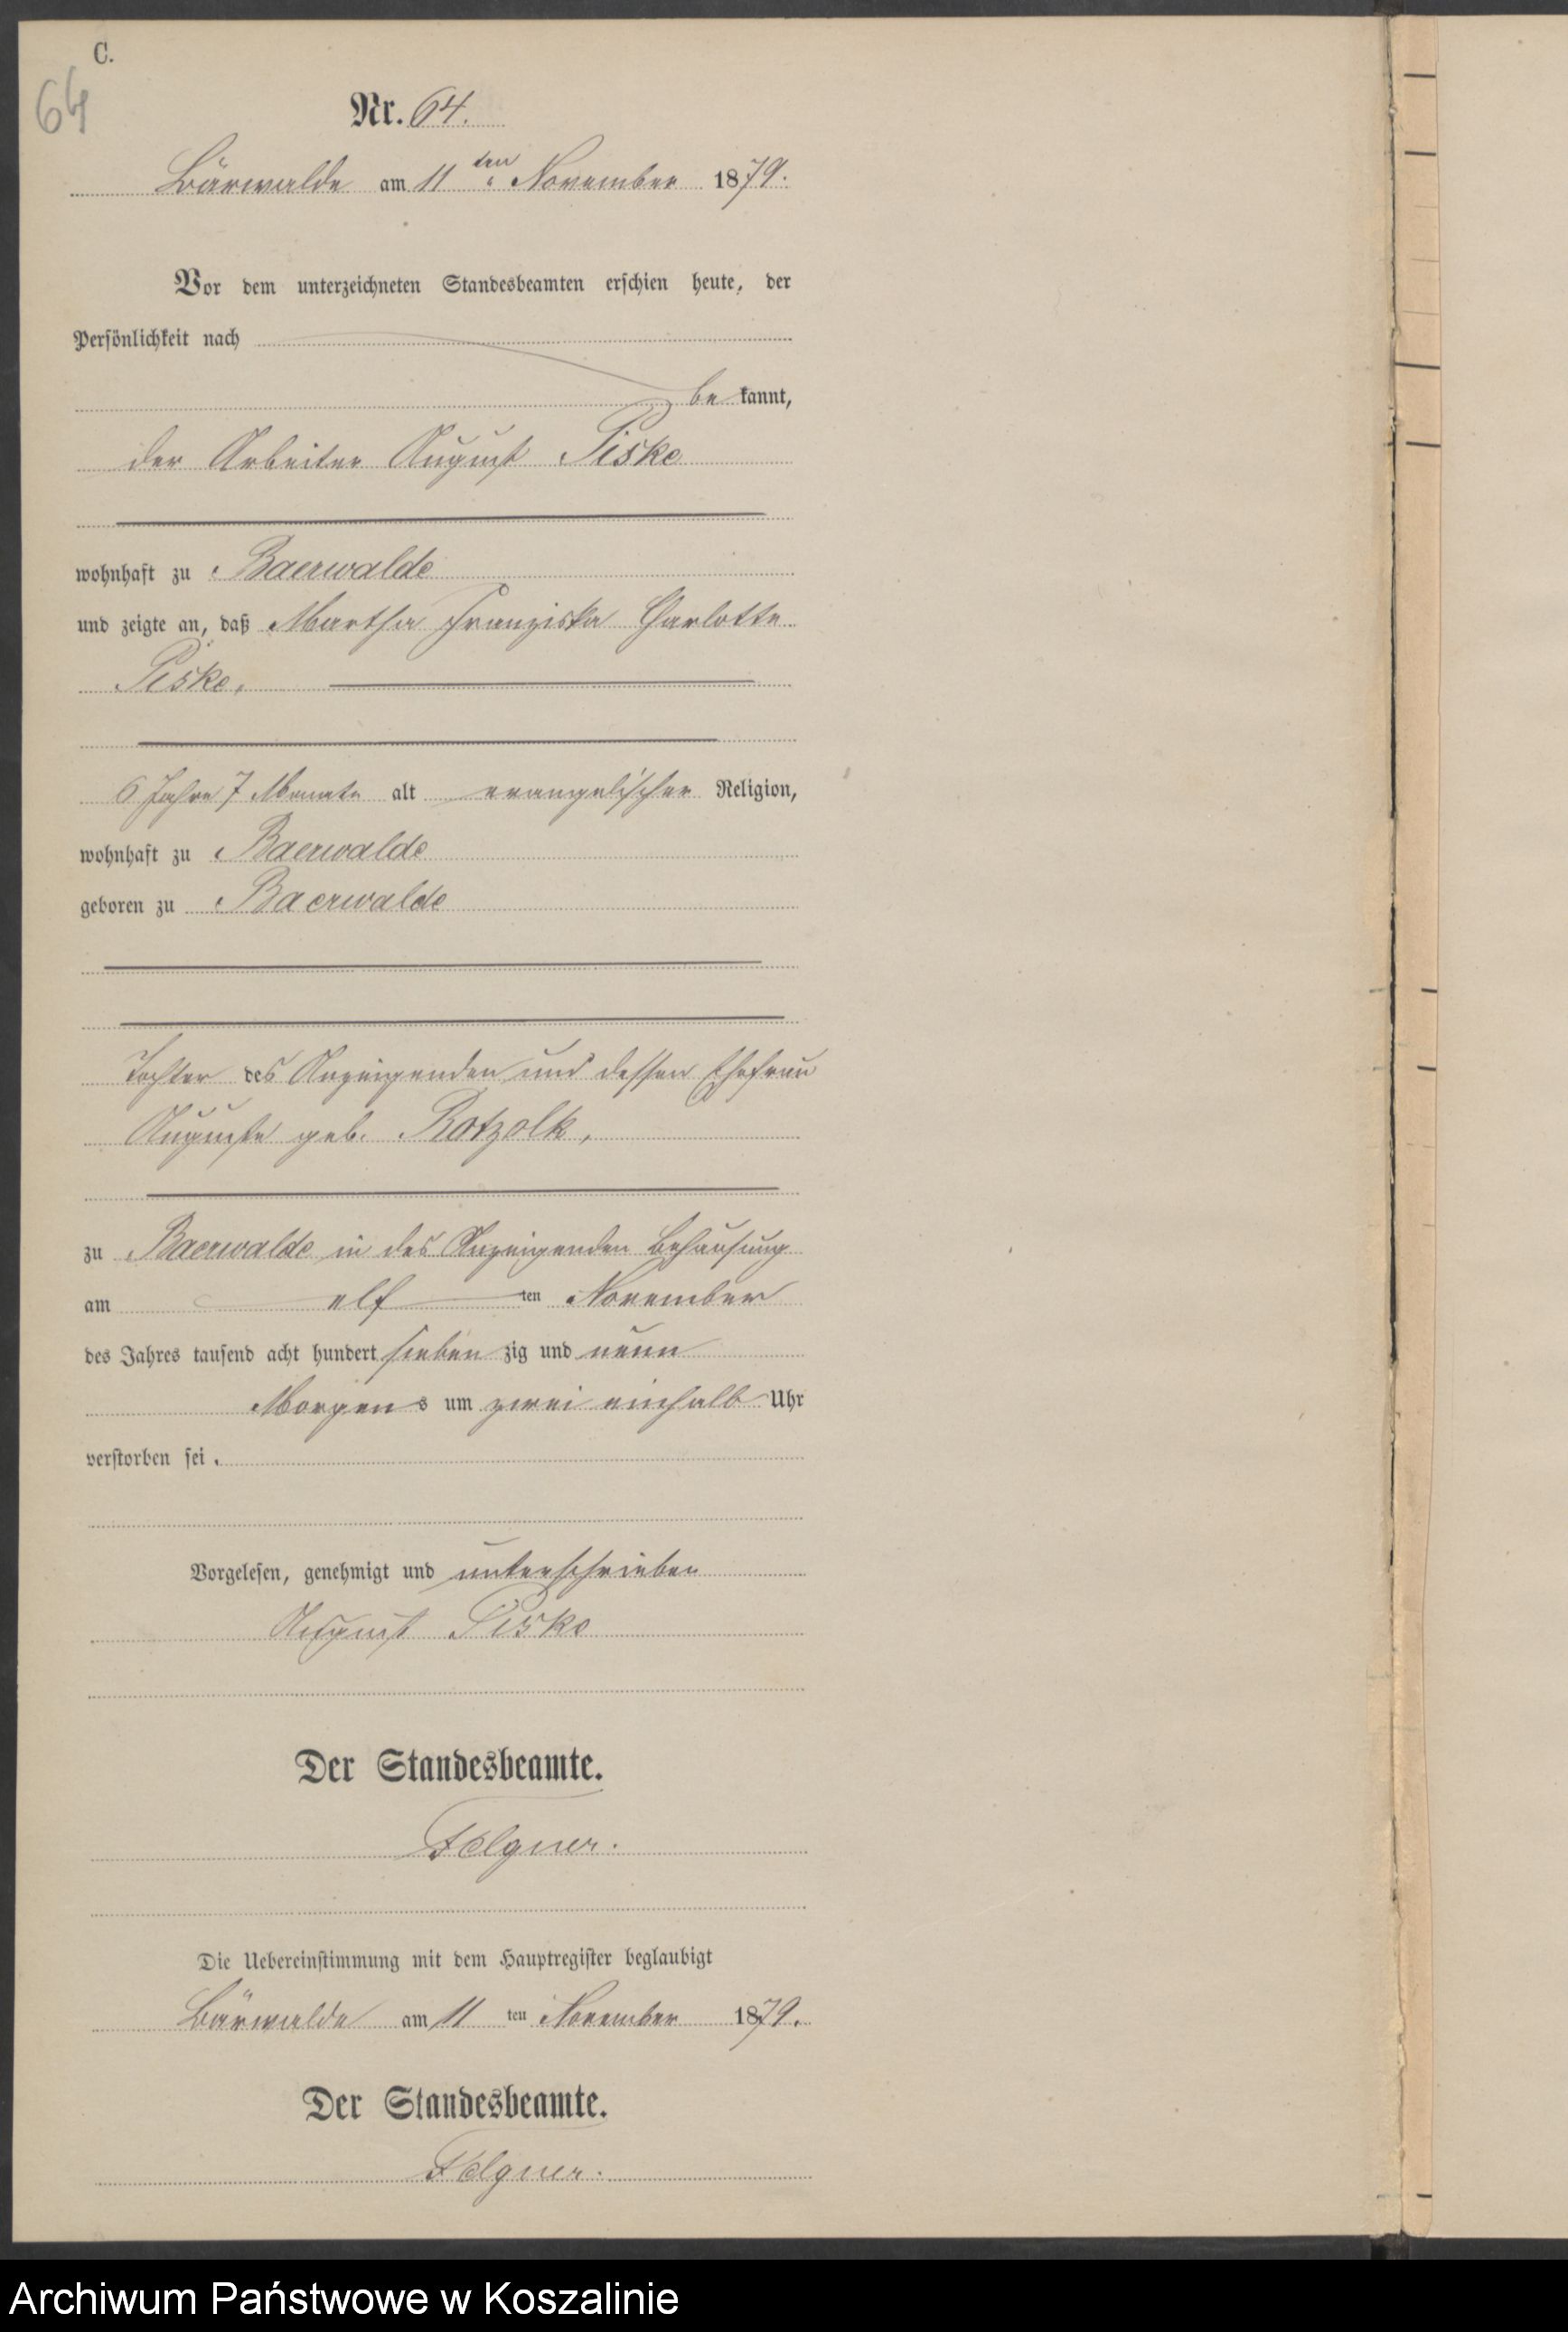 C.
64
Nr. 64.
Bärwalde am 11ten November 1879.
Vor dem unterzeichneten Standesbeamten erschien heute, der
Persönlichkeit nach
be kannt,
der Arbeiter August Piske
wohnhaft zu Baerwalde
und zeigte an, daß Martha Franziska Charlotte
Piske,
6 Jahre 7 Monate alt evangelischer Religion,
wohnhaft zu Baerwalde
geboren zu Baerwalde
Tochter des Anzeigenden und dessen Ehefrau
Auguste geb. Rotzolk,
zu Baerwalde in des Anzeigenden Behausung
am elf ten November
des Jahres tausend acht hundert sieben zig und neun
Morgens um zwei einhalb Uhr
verstorben sei.
Vorgelesen, genehmigt und unterschrieben
August Piske
Der Standesbeamte.
Felgner.
Die Uebereinstimmung mit dem Hauptregister beglaubigt
Bärwalde am 11 ten November 1879.
Der Standesbeamte.
Felgner.
Archiwum Państwowe w Koszalinie